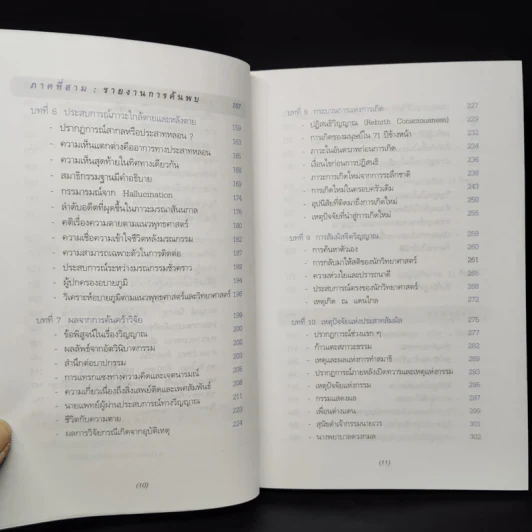 ภาคที่สาม : รายงานการค้นพบ 157
บทที่ 6 ประสบการณ์ภาวะใกล้ตายและหลังตาย 159
- ปรากฏการณ์สากลหรือประสาทหลอน ? 163
- ความเห็นแตกต่างคืออาการทางประสาทหลอน 165
- ความเห็นสุดท้ายในทิศทางเดียวกัน 168
- สมาธิกรรมฐานมีคำอธิบาย
- กรรมารมณ์จาก Hallucination 174
- ลำดับอดีตที่ผุดขึ้นในภาวะมรณาสันนกาล 176
- คติเรื่องความตายตามแนวพุทธศาสตร์
- ความเชื่อความเข้าใจชีวิตหลังมรณกรรม
- ความสามารถเฉพาะตัวในการติดต่อ
- ประสบการณ์ระหว่างมรณกรรมชั่วคราว
- ผู้ปกครองอบายภูมิ
- วิเคราะห์อบายภูมิตามแนวพุทธศาสตร์และวิทยาศาสตร์ 196
บทที่ 7 ผลจากการค้นคว้าวิจัย 199
- ข้อพิสูจน์ในเรื่องวิญญาณ
- ผลลัพธ์จากอัตวินิบาตกรรม
- สำนึกต่อบาปกรรม
- การแทรกแซงทางความคิดและเจตนารมณ์
- ความเกี่ยวเนื่องถึงสิ่งเสพย์ติดและเพศสัมพันธ์ 208
- นายแพทย์ผู้ผ่านประสบการณ์ทางวิญญาณ 211
- ชีวิตกับความตาย
- ผลการวิจัยกรณีเกิดจากอุบัติเหตุ 224
(10)
บทที่ 8 กระบวนการแห่งการเกิด 227
- ปฏิสนธิวิญญาณ (Rebirth Consciousness) 229
- การเกิดของมนุษย์ใน 71 ปีข้างหน้า 232
- ภาวะในอันตรภพก่อนการเกิด
- เงื่อนไขก่อนการปฏิสนธิ
- ภาวะการเกิดใหม่จากการระลึกชาติ
- การเกิดใหม่ในครอบครัวเดิม
- อุปนิสัยที่ติดมาถึงการเกิดใหม่
- เหตุปัจจัยที่นำสู่การเกิดใหม่ 255
บทที่ 9 การสัมผัสจิตวิญญาณ 259
- การค้นหาตัวเอง 260
- การกลับมาให้สติของนักวิทยาศาสตร์ 261
- ความห่วงใยและปรารถนาดี
- ประสบการณ์ตรงของนักวิทยาศาสตร์
- เหตุเกิด ณ แดนไกล 272
บทที่ 10 เหตุปัจจัยแห่งประสาทสัมผัส 275
- ปรากฏการณ์ช่วงแรก ๆ
- ก้าวแตะสภาวะธรรม
- เหตุและผลแห่งการทำสมาธิ
- ปรากฏการณ์ภายหลังเปิดทวารและเหตุแห่งกรรม
- เหตุปัจจัยแห่งกรรม
- กรรมแสดงผล
- เพื่อนต่างแดน
- สุนัขดำเจ้ากรรมนายเวร 298
- นางพยาบาลดวงกมล 302
(11)